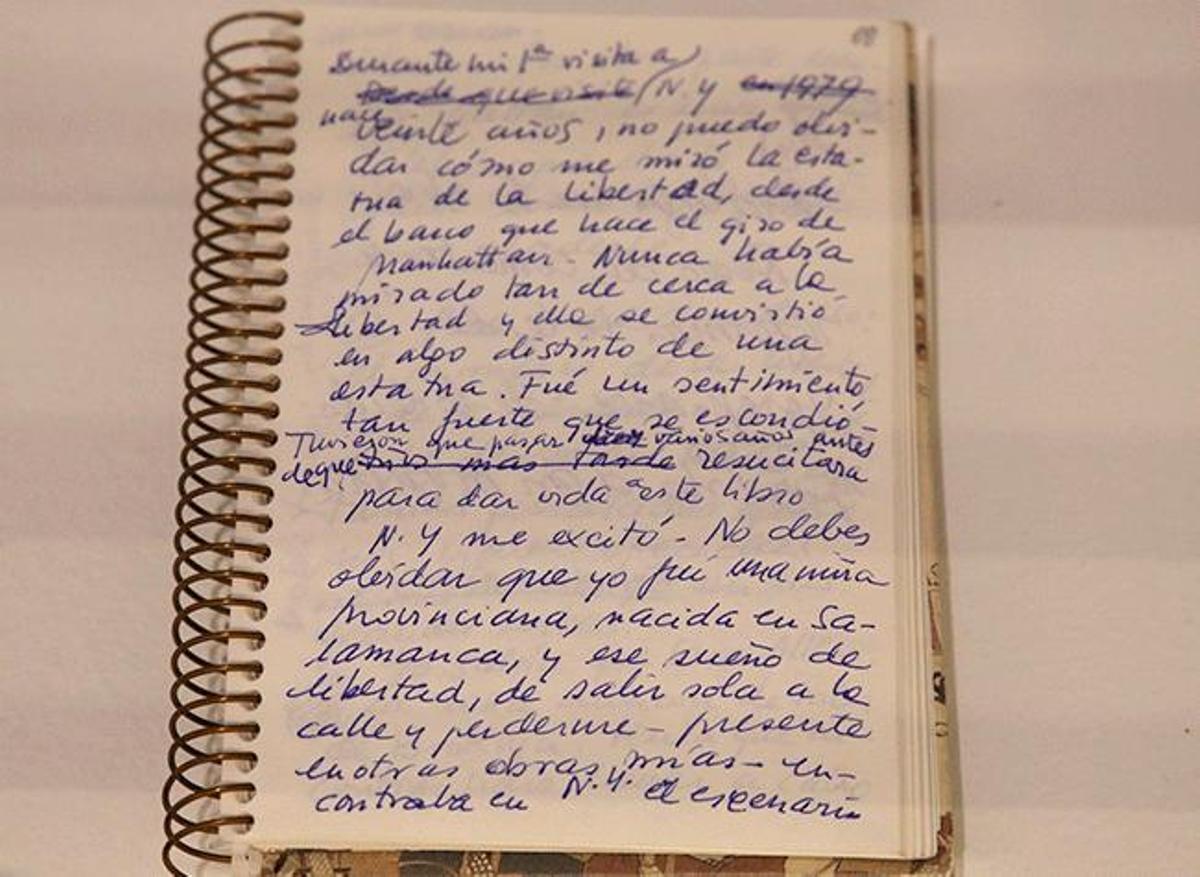 Durante mi 1ª visita a
Desde que visité N.Y en 1979
hace
veinte años, no puedo olvi-
dar cómo me miró la esta-
tua de la libertad, desde
el barco que hace el giro de
Manhattan. Nunca había
mirado tan de cerca a la
Libertad y ella se convirtió
en algo distinto de una
estatua. Fué un sentimiento
tan fuerte que se escondió.
Tuvieron que pasar varios años antes
de que más tarde resucitara
para dar vida a este libro
N.Y me excitó - No debes
olvidar que yo fuí una niña
provinciana, nacida en Sa-
lamanca, y ese sueño de
libertad, de salir sola a la
calle y perderme - presente
en otras obras mías - en-
contraba en N.Y. el escenario